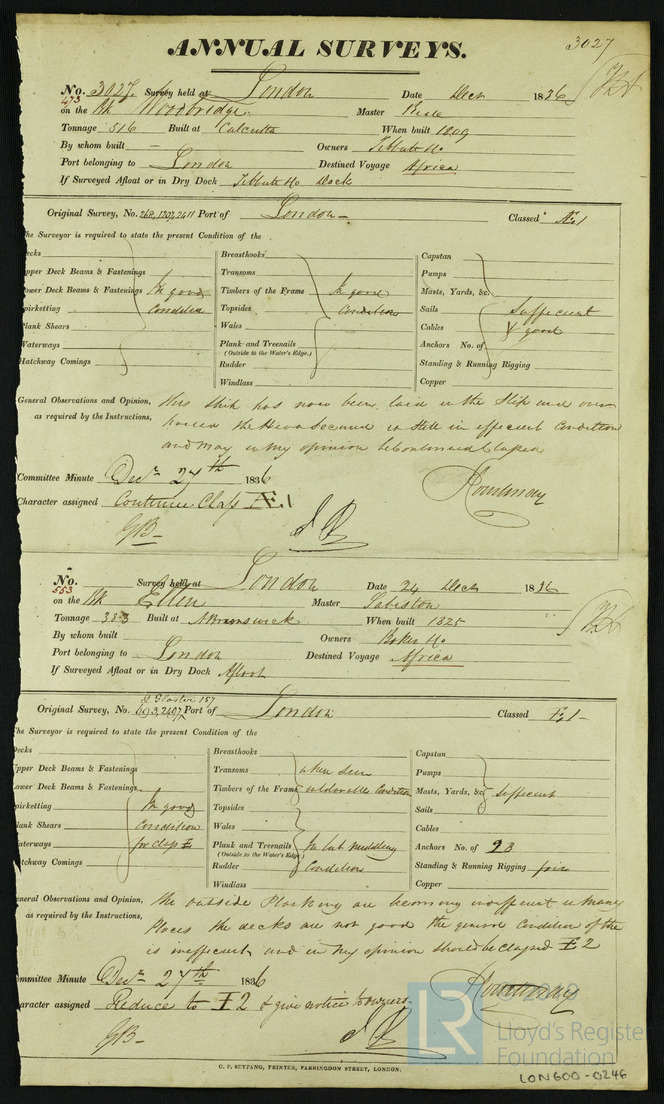 3027
ANNUAL SURVEYS.
No. 3027. Survey held at London Date Decr 1836
473
on the Bk Woodbridge. Master
Tonnage 516 Built at Calcutta When built 1809
By whom built — Owners Tebbutt &Co
Port belonging to London Destined Voyage Africa
If Surveyed Afloat or in Dry Dock Tebbutt &Co Dock
Original Survey, No. 268,1202,2411 Port of London Classed Æ1
The Surveyor is required to state the present Condition of the
Decks
Upper Deck Beams & Fastenings
Lower Deck Beams & Fastenings In good
Spirketting Condition
Plank Shears
Waterways
Hatchway Comings
Breasthooks
Transoms
Timbers of the Frame In good
Topsides Condition
Wales
Plank and Treenails
(Outside to the Water's Edge.)
Rudder
Windlass
Capstan
Pumps
Masts, Yards, &c.
Sails Sufficient
Cables & good
Anchors No. of
Standing & Running Rigging
Copper
General Observations and Opinion, this Ship has now been laid in the Slip and over
as required by the Instructions, is Still in efficient Condition
and may in my opinion be Continued Classed
Committee Minute Decr 27th 1836
Character assigned Continue Class Æ1
GB
No. Survey held at London Date 24 Decr 1836
553
on the Bk Ellen Master Sabiston
Tonnage 383 Built at N Brunswick When built 1825
By whom built Owners Baker &Co
Port belonging to London Destined Voyage Africa
If Surveyed Afloat or in Dry Dock Afloat
157
Original Survey, No. 693,2407 Port of London Classed E1
The Surveyor is required to state the present Condition of the
Decks
Upper Deck Beams & Fastenings
Lower Deck Beams & Fastenings
Spirketting In good
Plank Shears Condition
Waterways for Class E
Hatchway Comings
Breasthooks
Transoms where seen
Timbers of the Frame in tolerable Condition
Topsides
Wales
Plank and Treenails In but middling
(Outside to the Water's Edge)
Rudder Condition
Windlass
Capstan
Pumps
Masts, Yards, &c. Sufficient
Sails
Cables
Anchors No. of 3B
Standing & Running Rigging fair
Copper
General Observations and Opinion, the outside Planking are becoming inefficient in many
as required by the Instructions, Places the decks are not good the general Condition of the
is inefficient and in my opinion should be Classed E2
Committee Minute Decr 27th 1836
Character assigned Reduce to E2 & give notice to owners
GB
LR
Lloyd's Register
Foundation
C. F. SEYFANG, PRINTER, FARRINGDON STREET, LONDON.
LON600-0246